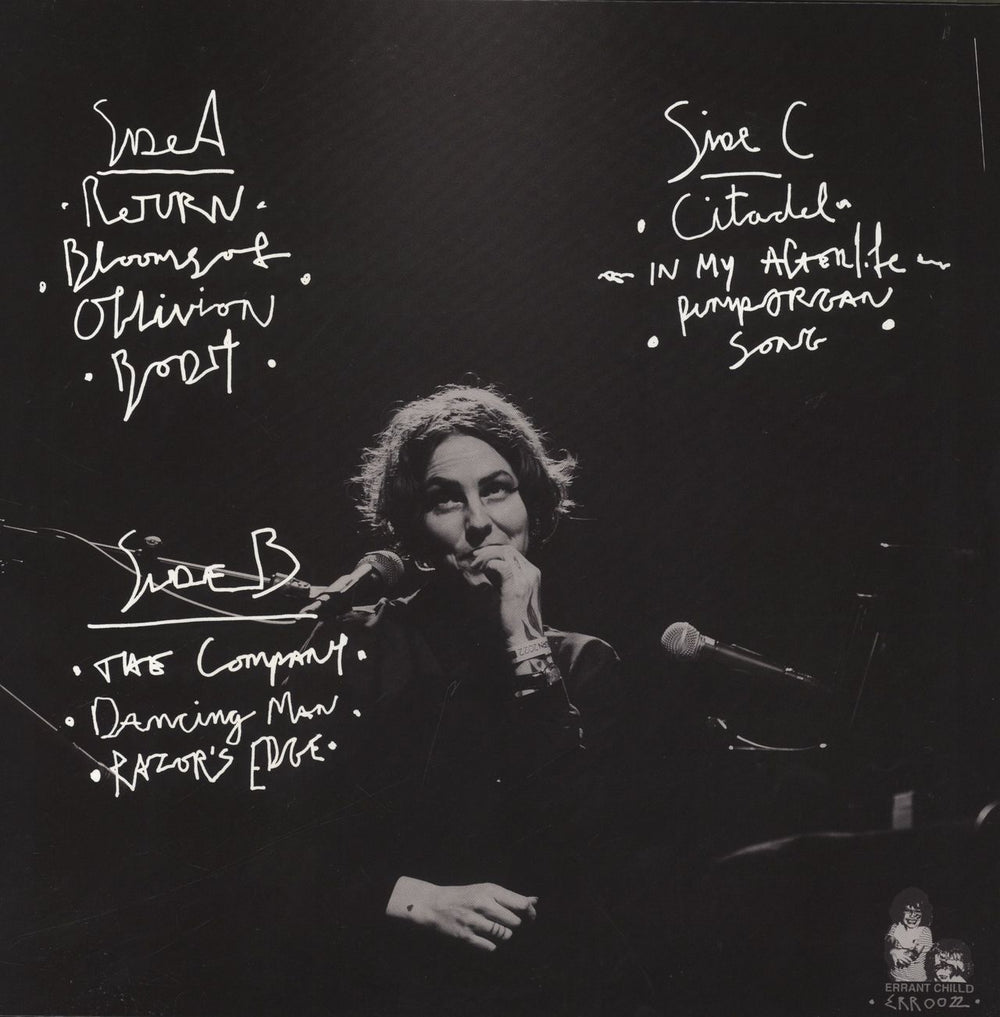 Side A
Return
Blooms of
Oblivion
Body
Side B
The Company
Dancing Man
Razor's Edge
Side C
Citadel
In My Afterlife
Pump Organ
Song
2022
ERRANT CHILLD
ERR0022